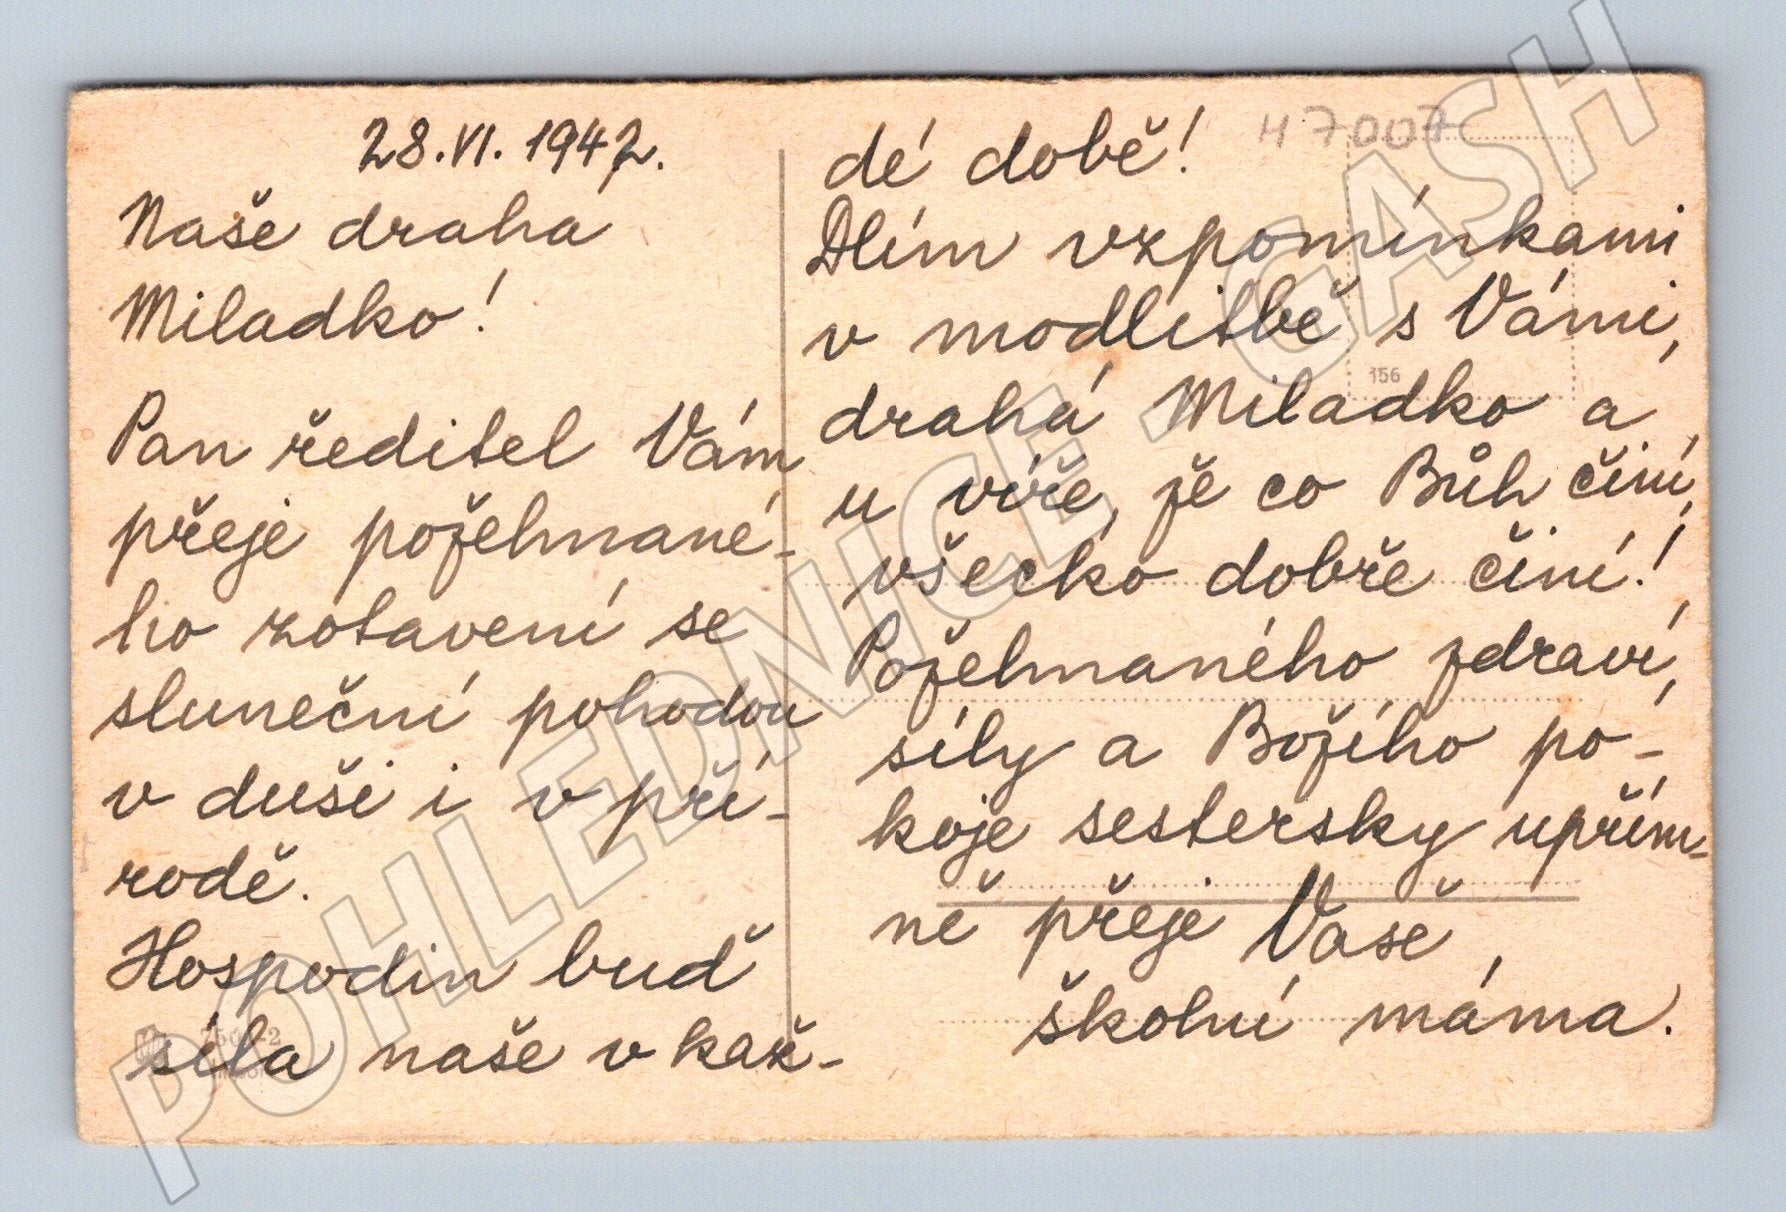 28.VI.1942.
Naše drahá
Miladko!
Pan ředitel Vám
přeje požehnané-
ho zotavení se
sluneční pohodou
v duši i v pří-
rodě.
Hospodin buď
síla naše v kaž-
dé době!
Dlím vzpomínkami
v modlitbě s Vámi,
drahá Miladko a
u víře, že co Bůh činí,
všecko dobře činí!
Požehnaného zdraví,
síly a Božího po-
koje sestersky upřím-
ně přeje Vaše
školní máma.
47007
156
POHLEDNICE - GASH